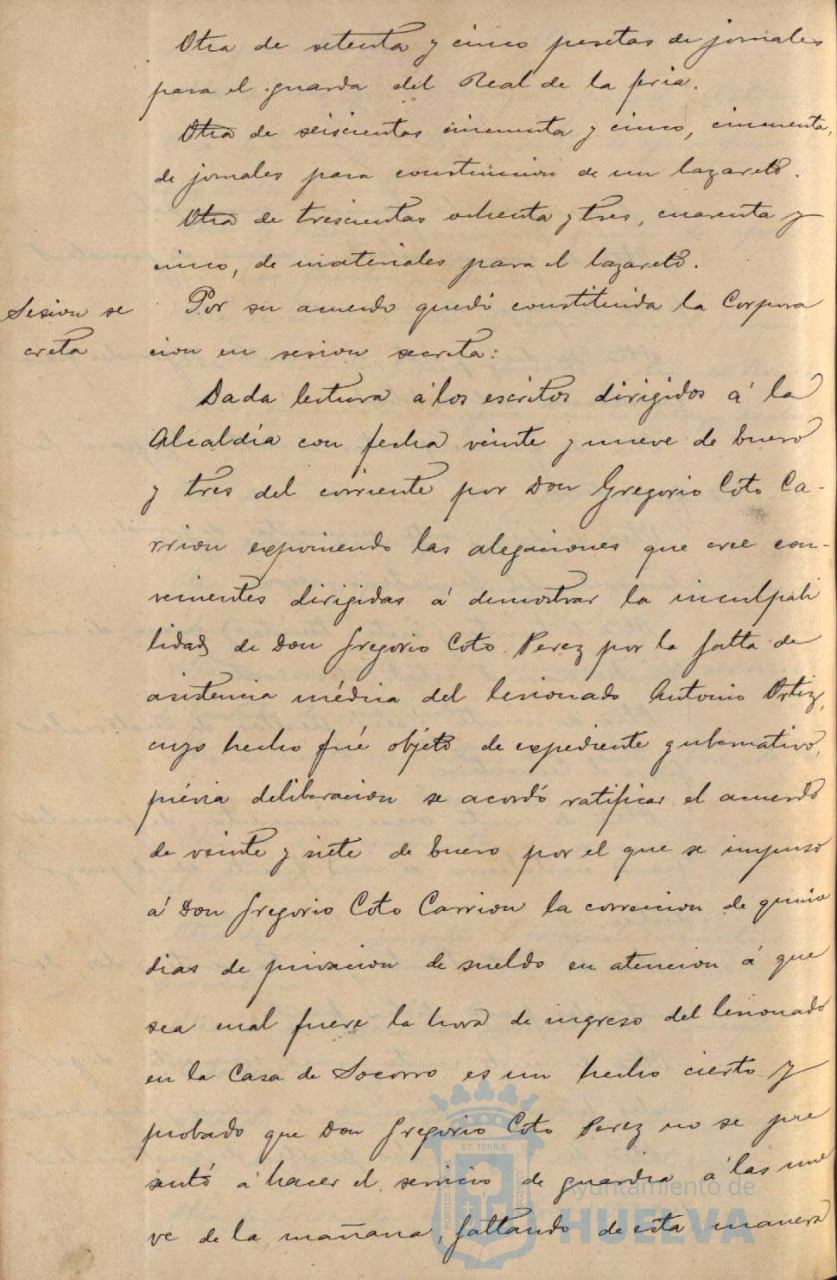 Otra de setenta y cinco pesetas de jornales
para el guarda del Real de la feria.
Otra de seiscientas cincuenta y cinco, cincuenta,
de jornales para construccion de un lazareto.
Otra de trescientas ochenta y tres, cuarenta y
cinco, de materiales para el lazareto.
Sesion se
creta
Por su acuerdo quedó constituida la Corpora
cion en sesion secreta:
Dada lectura á los escritos dirigidos á la
Alcaldía con fecha veinte y nueve de Enero
y tres del corriente por Don Gregorio Coto Ca-
rrion exponiendo las alegaciones que cree con-
venientes dirigidas á demostrar la inculpabi
lidad de Don Gregorio Coto Perez por la falta de
asistencia médica del lesionado Antonio Ortiz,
cuyo hecho fué objeto de expediente gubernativo,
prévia deliberacion se acordó ratificar el acuerdo
de veinte y siete de Enero por el que se impuso
á Don Gregorio Coto Carrion la correccion de quince
dias de privacion de sueldo en atencion á que
sea cual fuere la hora de ingreso del lesionado
en la Casa de Socorro es un hecho cierto y
probado que Don Gregorio Coto Perez no se pre
sentó á hacer el servicio de guardia á las nue
ve de la mañana, faltando de esta manera
Ayuntamiento de
HUELVA